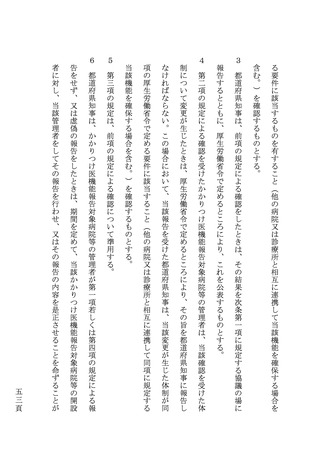 る要件に該当するものを有すること（他の病院又は診療所と相互に連携して当該機能を確保する場合を
含む。）を確認するものとする。
３　都道府県知事は、前項の規定による確認をしたときは、その結果を次条第一項に規定する協議の場に
報告するとともに、厚生労働省令で定めるところにより、これを公表するものとする。
４　第二項の規定による確認を受けたかかりつけ医機能報告対象病院等の管理者は、当該確認を受けた体
制について変更が生じたときは、厚生労働省令で定めるところにより、その旨を都道府県知事に報告し
なければならない。この場合において、当該報告を受けた都道府県知事は、当該変更が生じた体制が同
項の厚生労働省令で定める要件に該当すること（他の病院又は診療所と相互に連携して同項に規定する
当該機能を確保する場合を含む。）を確認するものとする。
５　第三項の規定は、前項の規定による確認について準用する。
６　都道府県知事は、かかりつけ医機能報告対象病院等の管理者が第一項若しくは第四項の規定による報
告をせず、又は虚偽の報告をしたときは、期間を定めて、当該かかりつけ医機能報告対象病院等の開設
者に対し、当該管理者をしてその報告を行わせ、又はその報告の内容を是正させることを命ずることが
五三頁